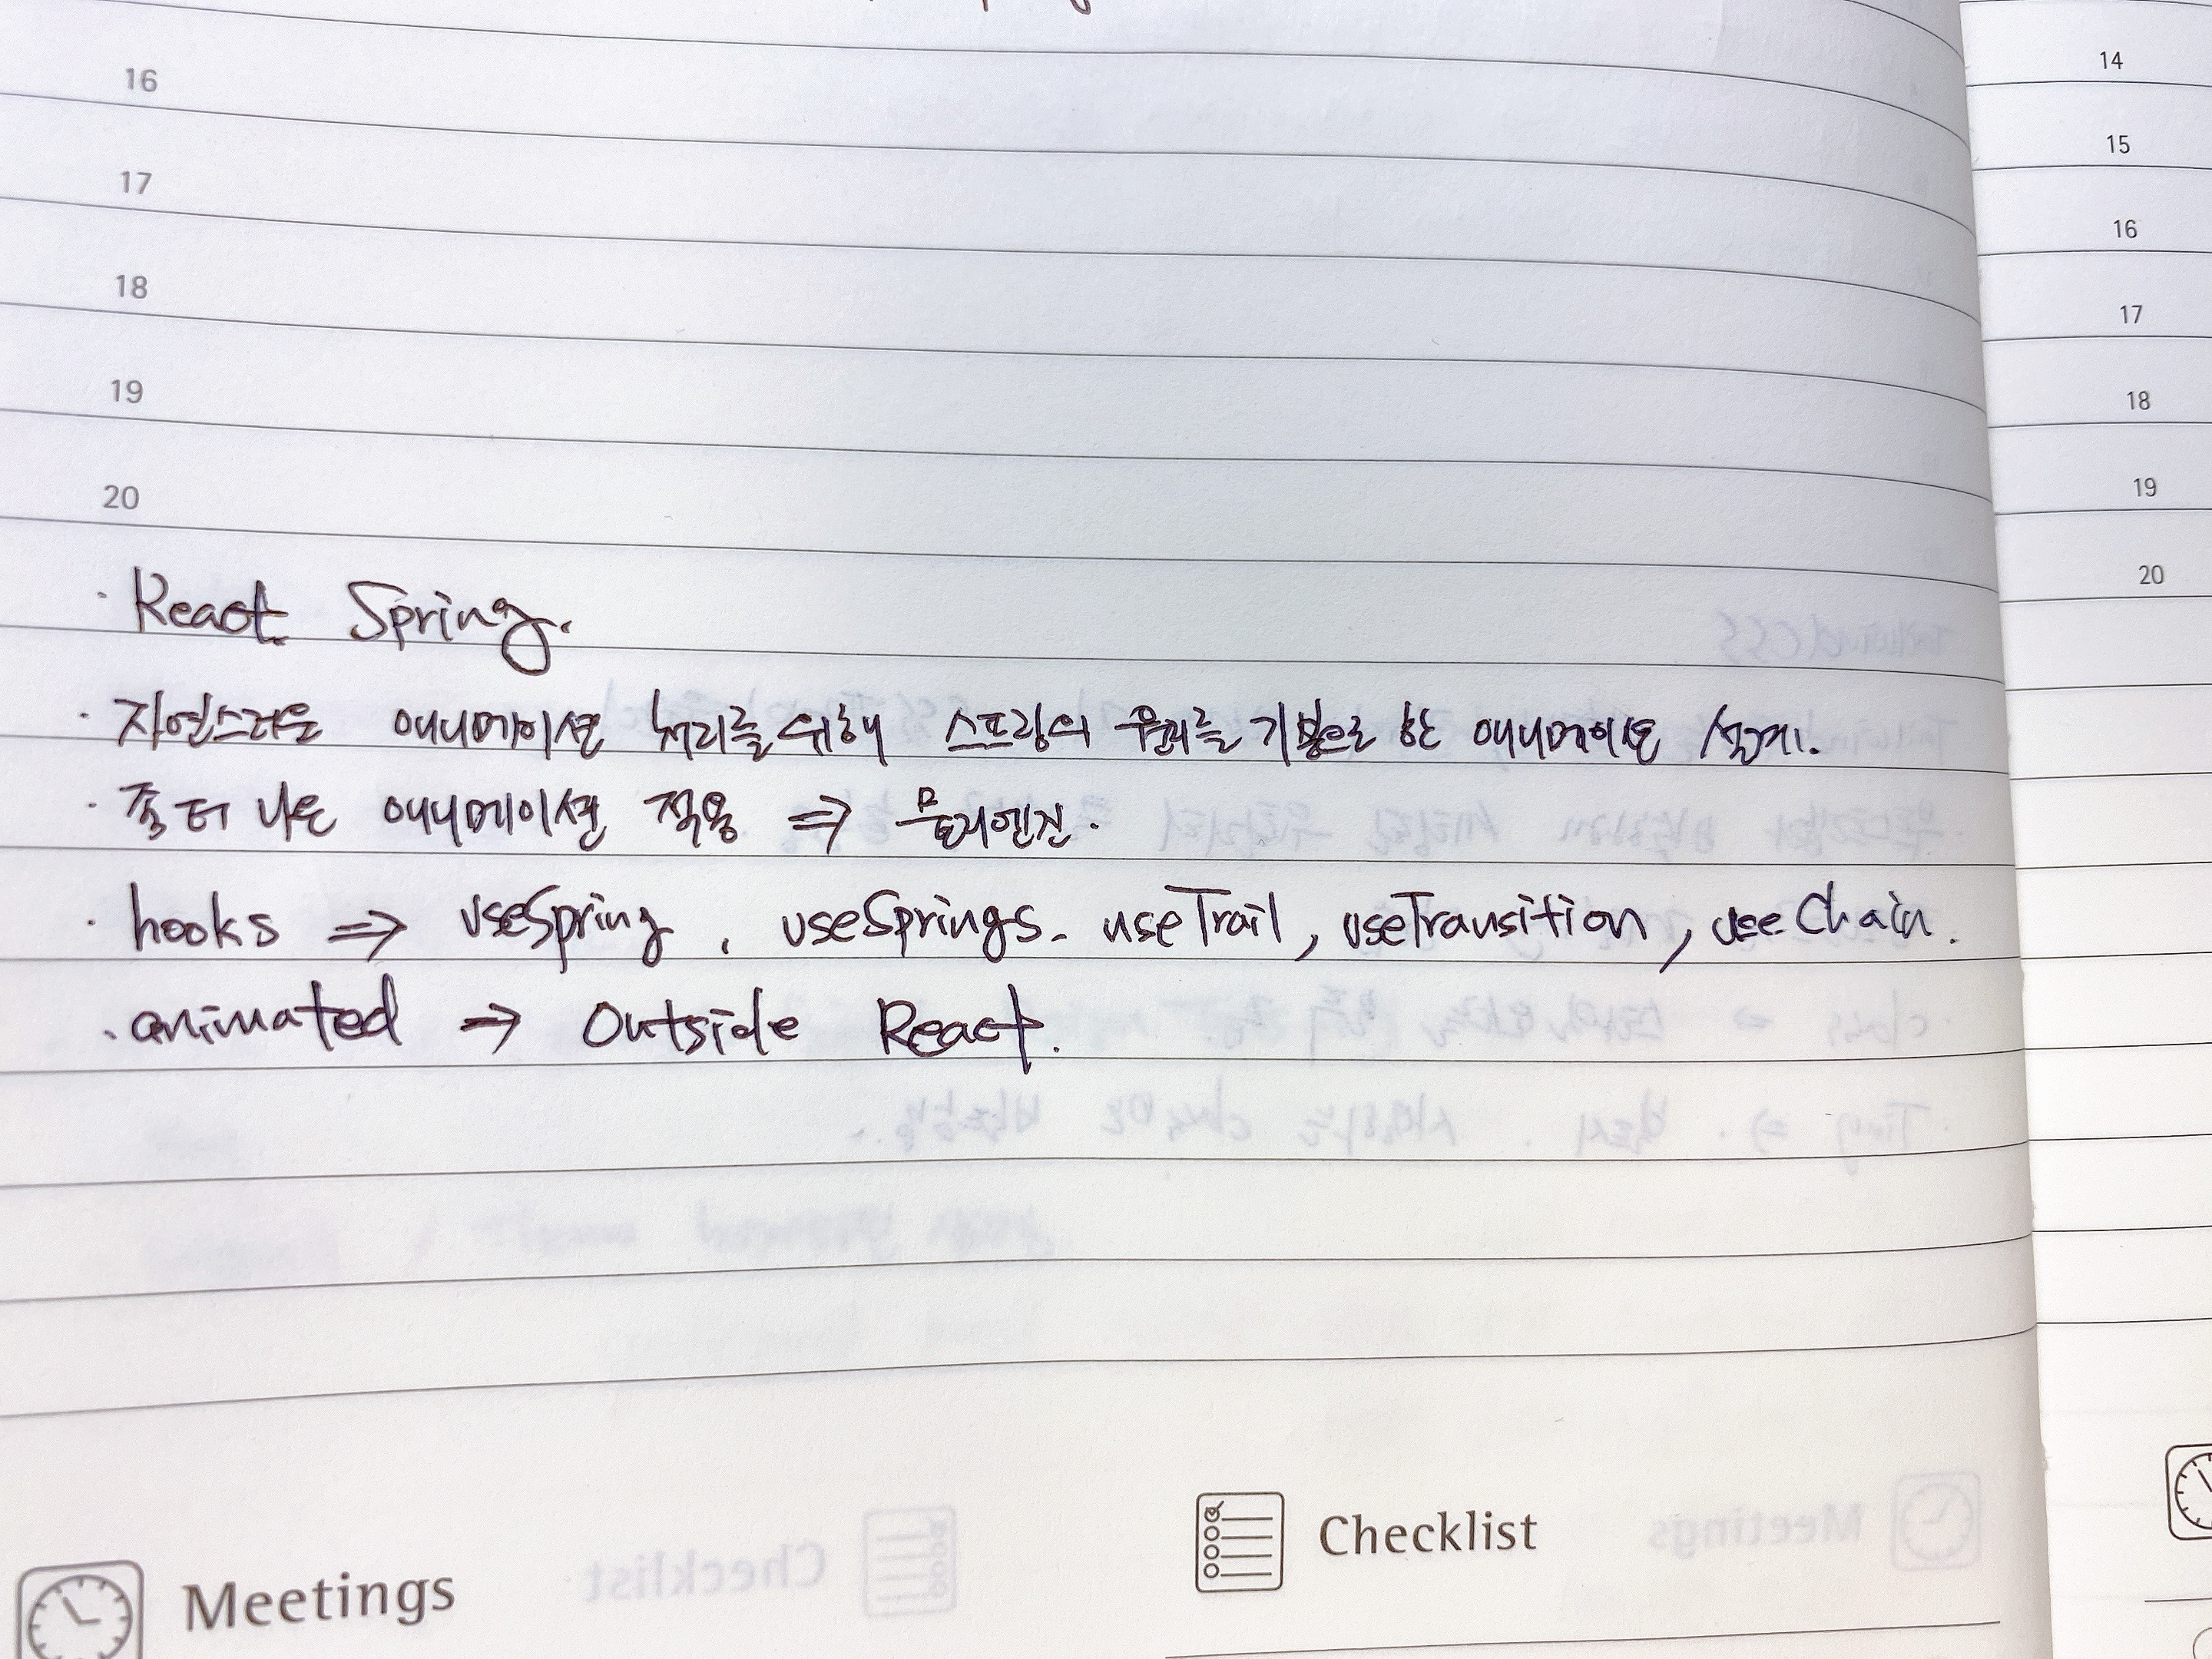 16
17
18
19
20
· React Spring.
· 자연스러운 애니메이션 처리를 위해 스프링의 원리를 기본으로 한 애니메이션 설계.
· 좀 더 나은 애니메이션 적용 ⇒ 물리엔진.
· hooks ⇒ useSpring, useSprings. useTrail, useTransition, useChain.
· animated → Outside React.
Meetings
Checklist
14
15
16
17
18
19
20